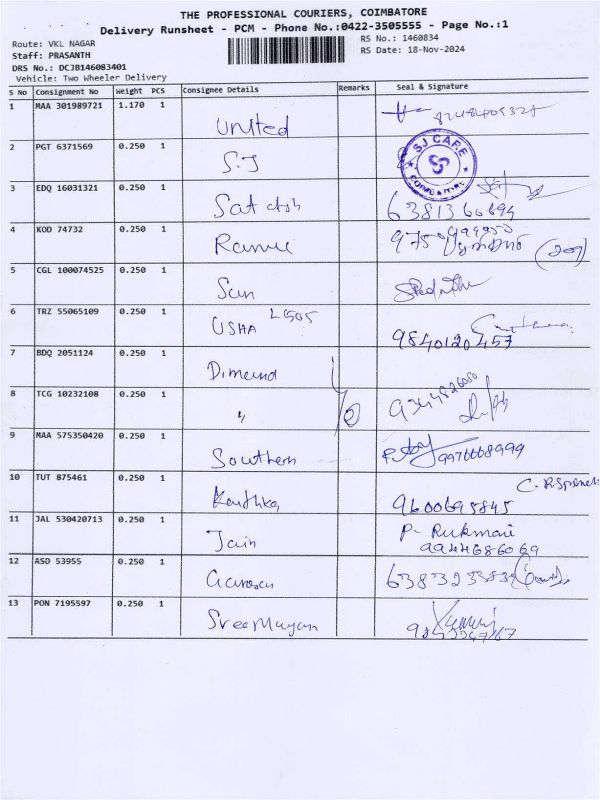 THE PROFESSIONAL COURIERS, COIMBATORE
Delivery Runsheet - PCM - Phone No.:0422-3505555 - Page No.:1
Route: VKL NAGAR RS No.: 1460834
Staff: PRASANTH RS Date: 18-Nov-2024
DRS No.: DCJB146083401
Vehicle: Two Wheeler Delivery
S No Consignment No Weight PCS Consignee Details Remarks Seal & Signature
1 MAA 301989721 1.170 1 United
2 PGT 6371569 0.250 1 S.J SJ CARE
3 EDQ 16031321 0.250 1 6381366894
4 KOD 74732 0.250 1
5 CGL 100074525 0.250 1 Sun
6 TRZ 55065109 0.250 1 USHA 9840120457
7 BDQ 2051124 0.250 1 Dimend
8 TCG 10232108 0.250 1 "
9 MAA 575350420 0.250 1 Southern
10 TUT 875461 0.250 1 9600695845
11 JAL 530420713 0.250 1 Jain P. Rukmani
9944686069
12 ASD 53955 0.250 1
13 PON 7195597 0.250 1 Sree Murugan